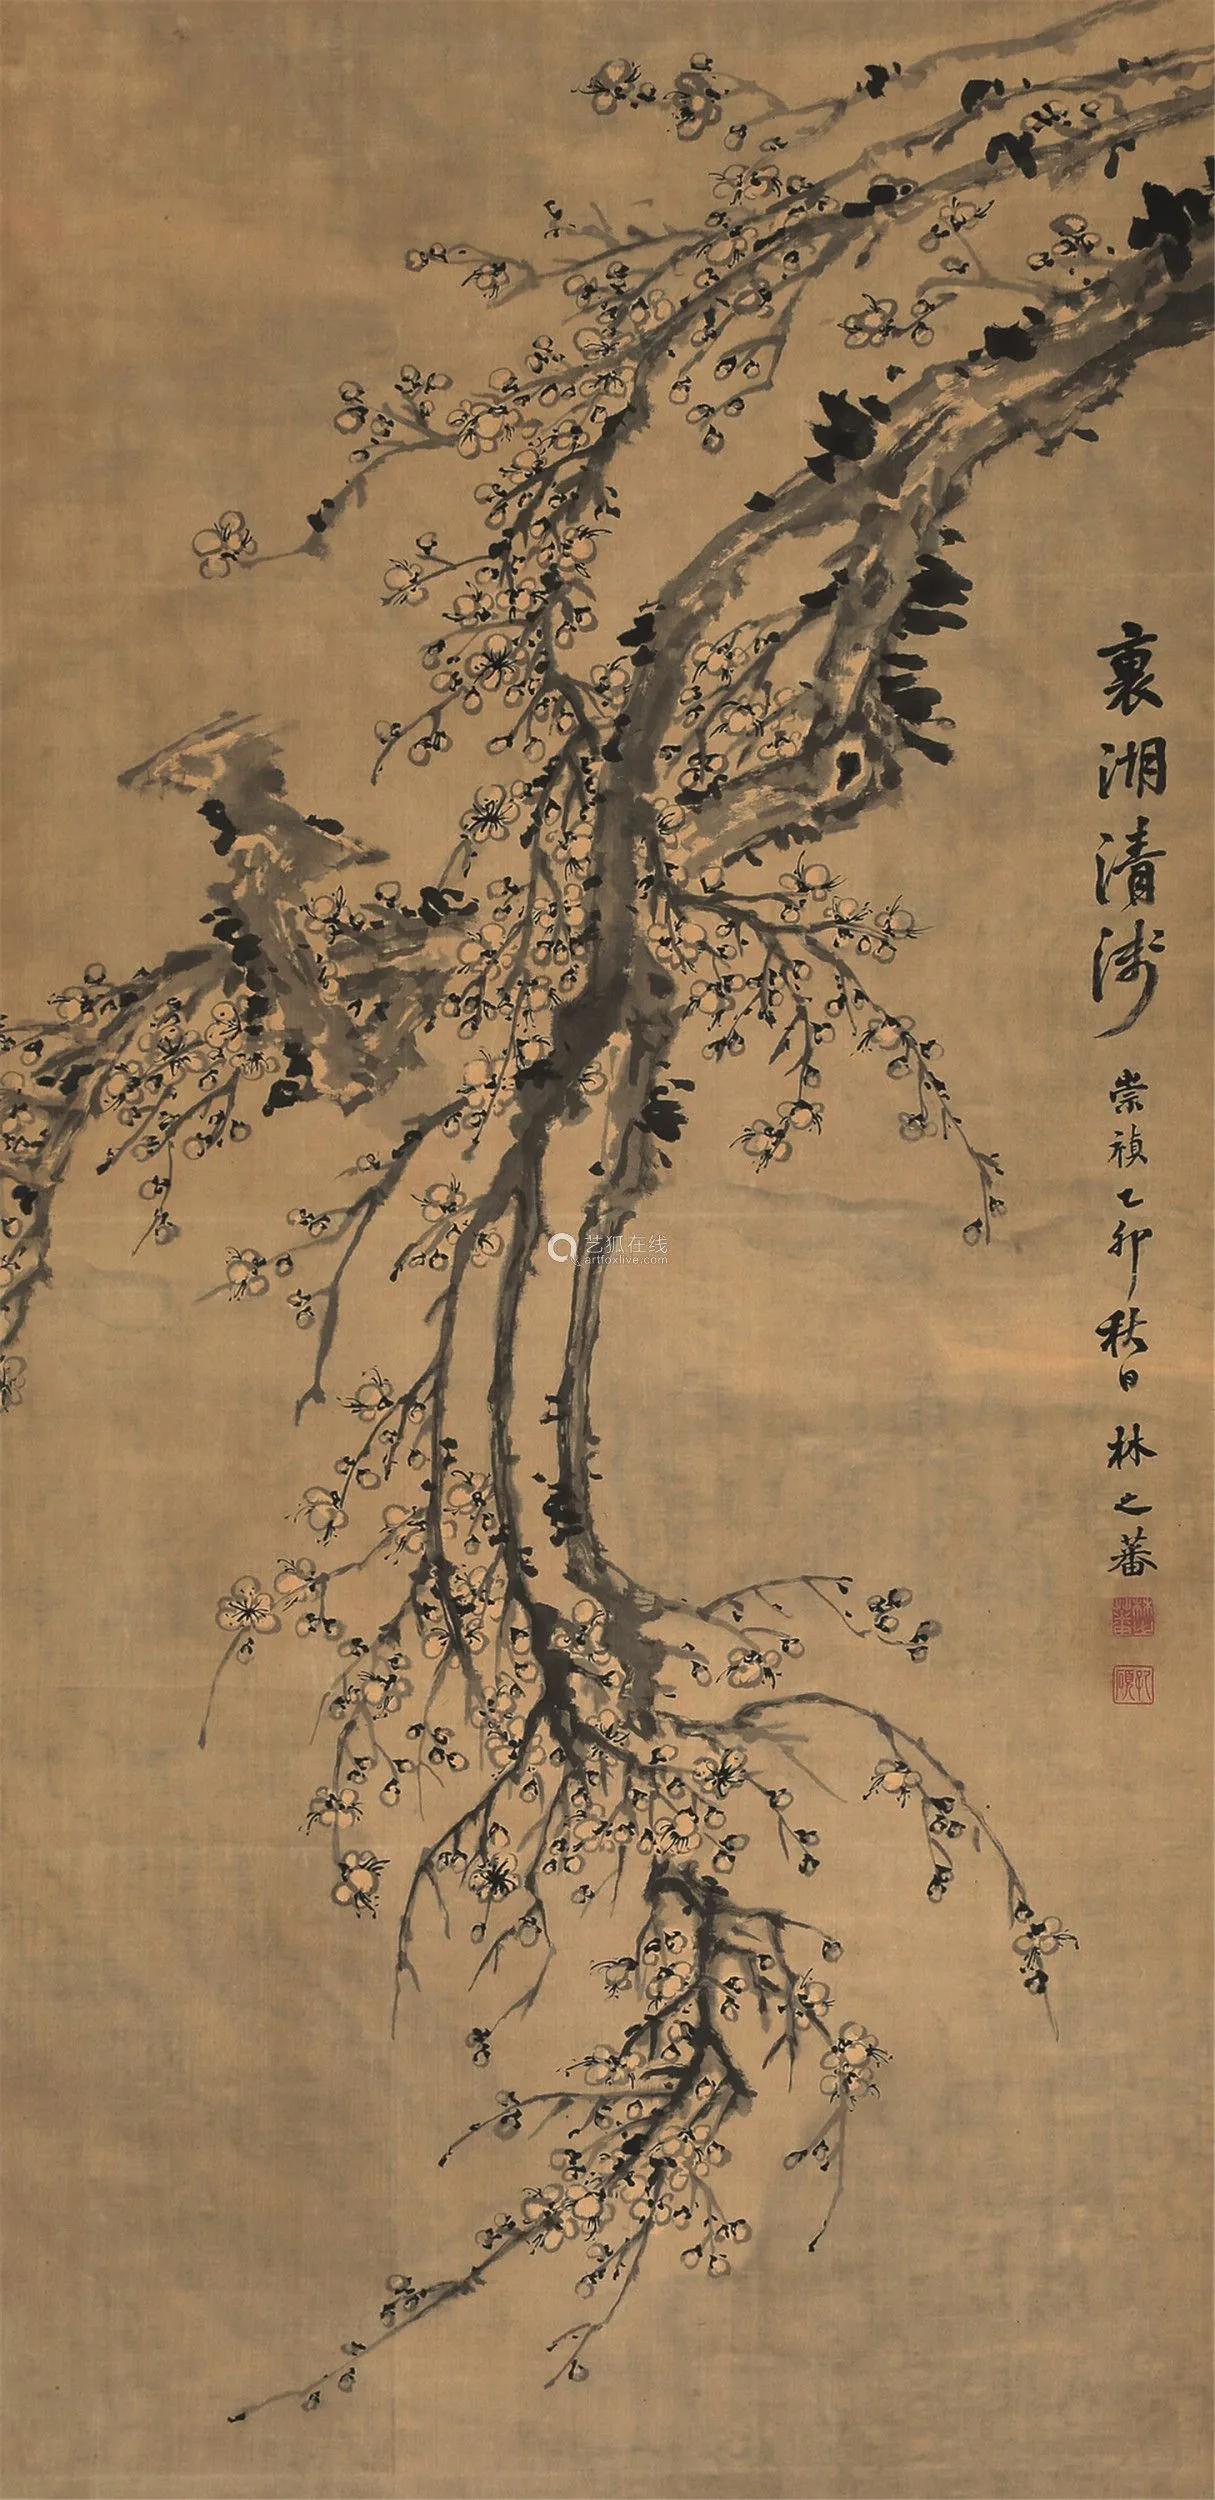 裏湖清淺
崇禎乙卯秋日林之蕃
艺狐在线
artfoxlive.com